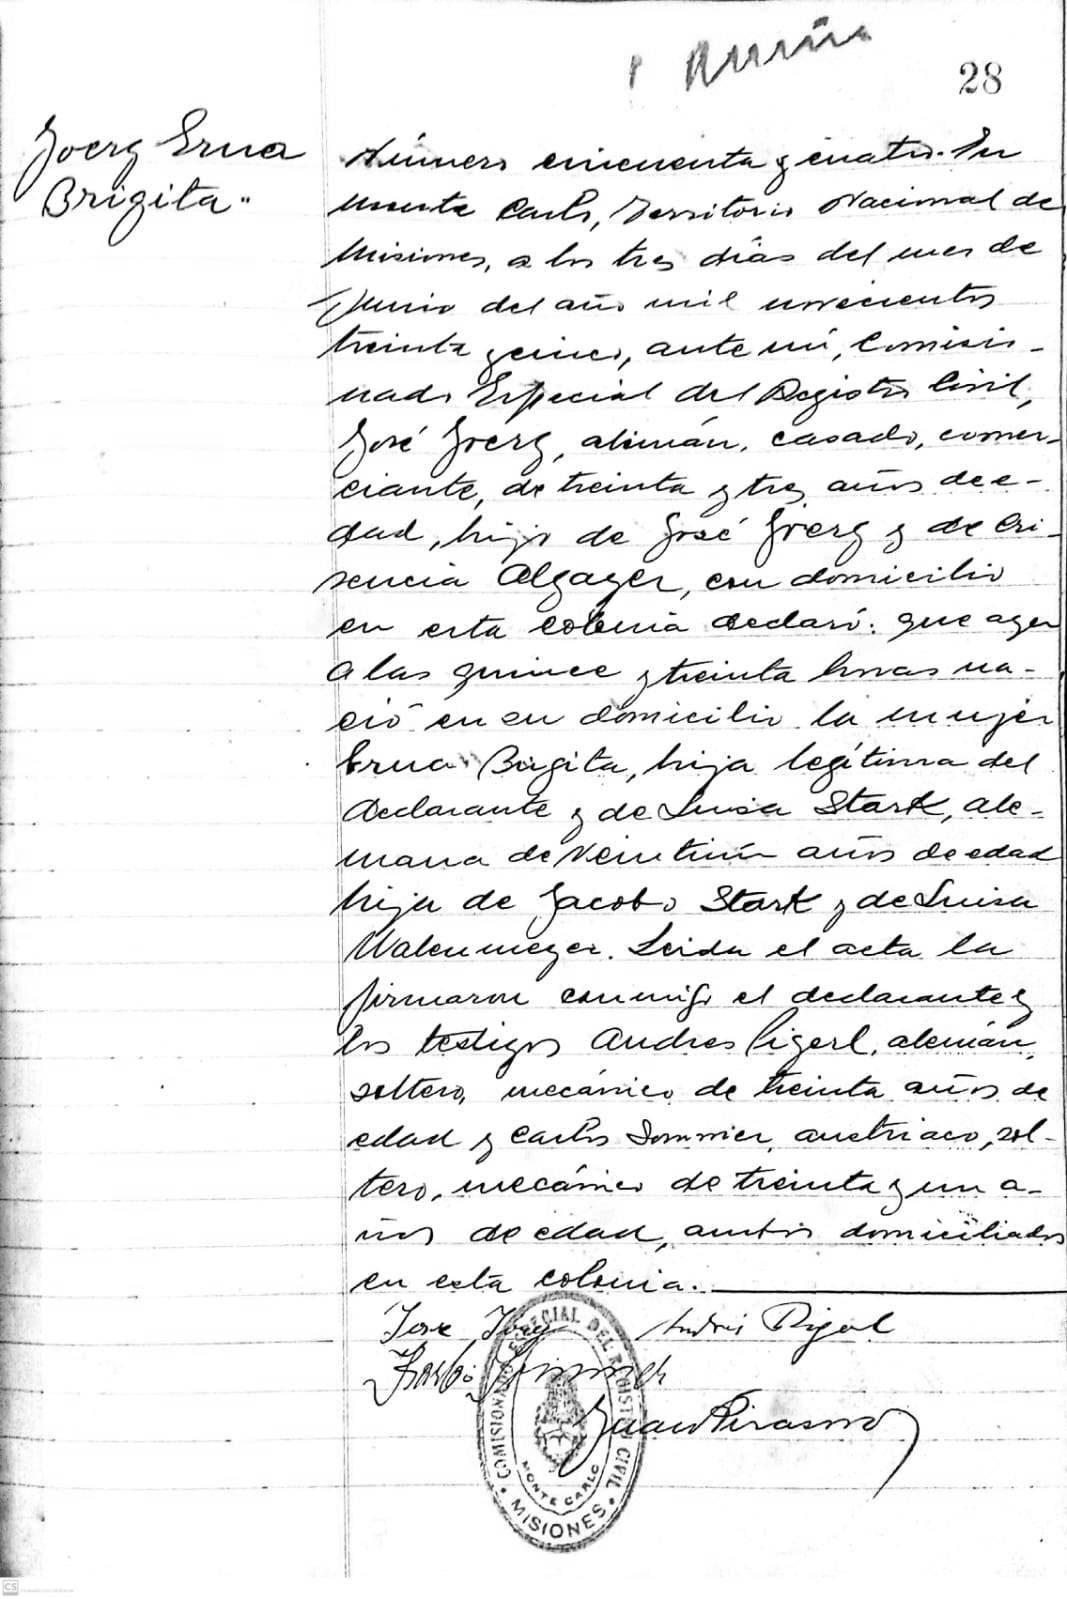 28
Joerg Erna
Brigita."
Número cincuenta y cuatro. En
Monte Carlo, Territorio Nacional de
Misiones, a los tres días del mes de
Junio del año mil novecientos
treinta y cinco, ante mí, Comisio-
nado Especial del Registro Civil,
José Joerg, alemán, casado, comer-
ciante, de treinta y tres años de e-
dad, hijo de José Joerg y de Cri-
sencia Algayer, con domicilio
en esta colonia declaró: que ayer
a las quince y treinta horas na-
ció en su domicilio la mujer
Erna Brigita, hija legítima del
declarante y de Luisa Stark, ale-
mana de veintiún años de edad
hija de Jacobo Stark y de Luisa
Walenmeyer. Leida el acta la
firmaron conmigo el declarante y
los testigos Andres Rigerl, alemán,
soltero, mecánico de treinta años de
edad y Carlos Sommer, austriaco, sol-
tero, mecánico de treinta y un a-
ños de edad, ambos domiciliados
en esta colonia.
José Joerg Andrés
Juan
COMISIONADO ESPECIAL DEL REGISTRO CIVIL
MONTE CARLO
· MISIONES ·
CS